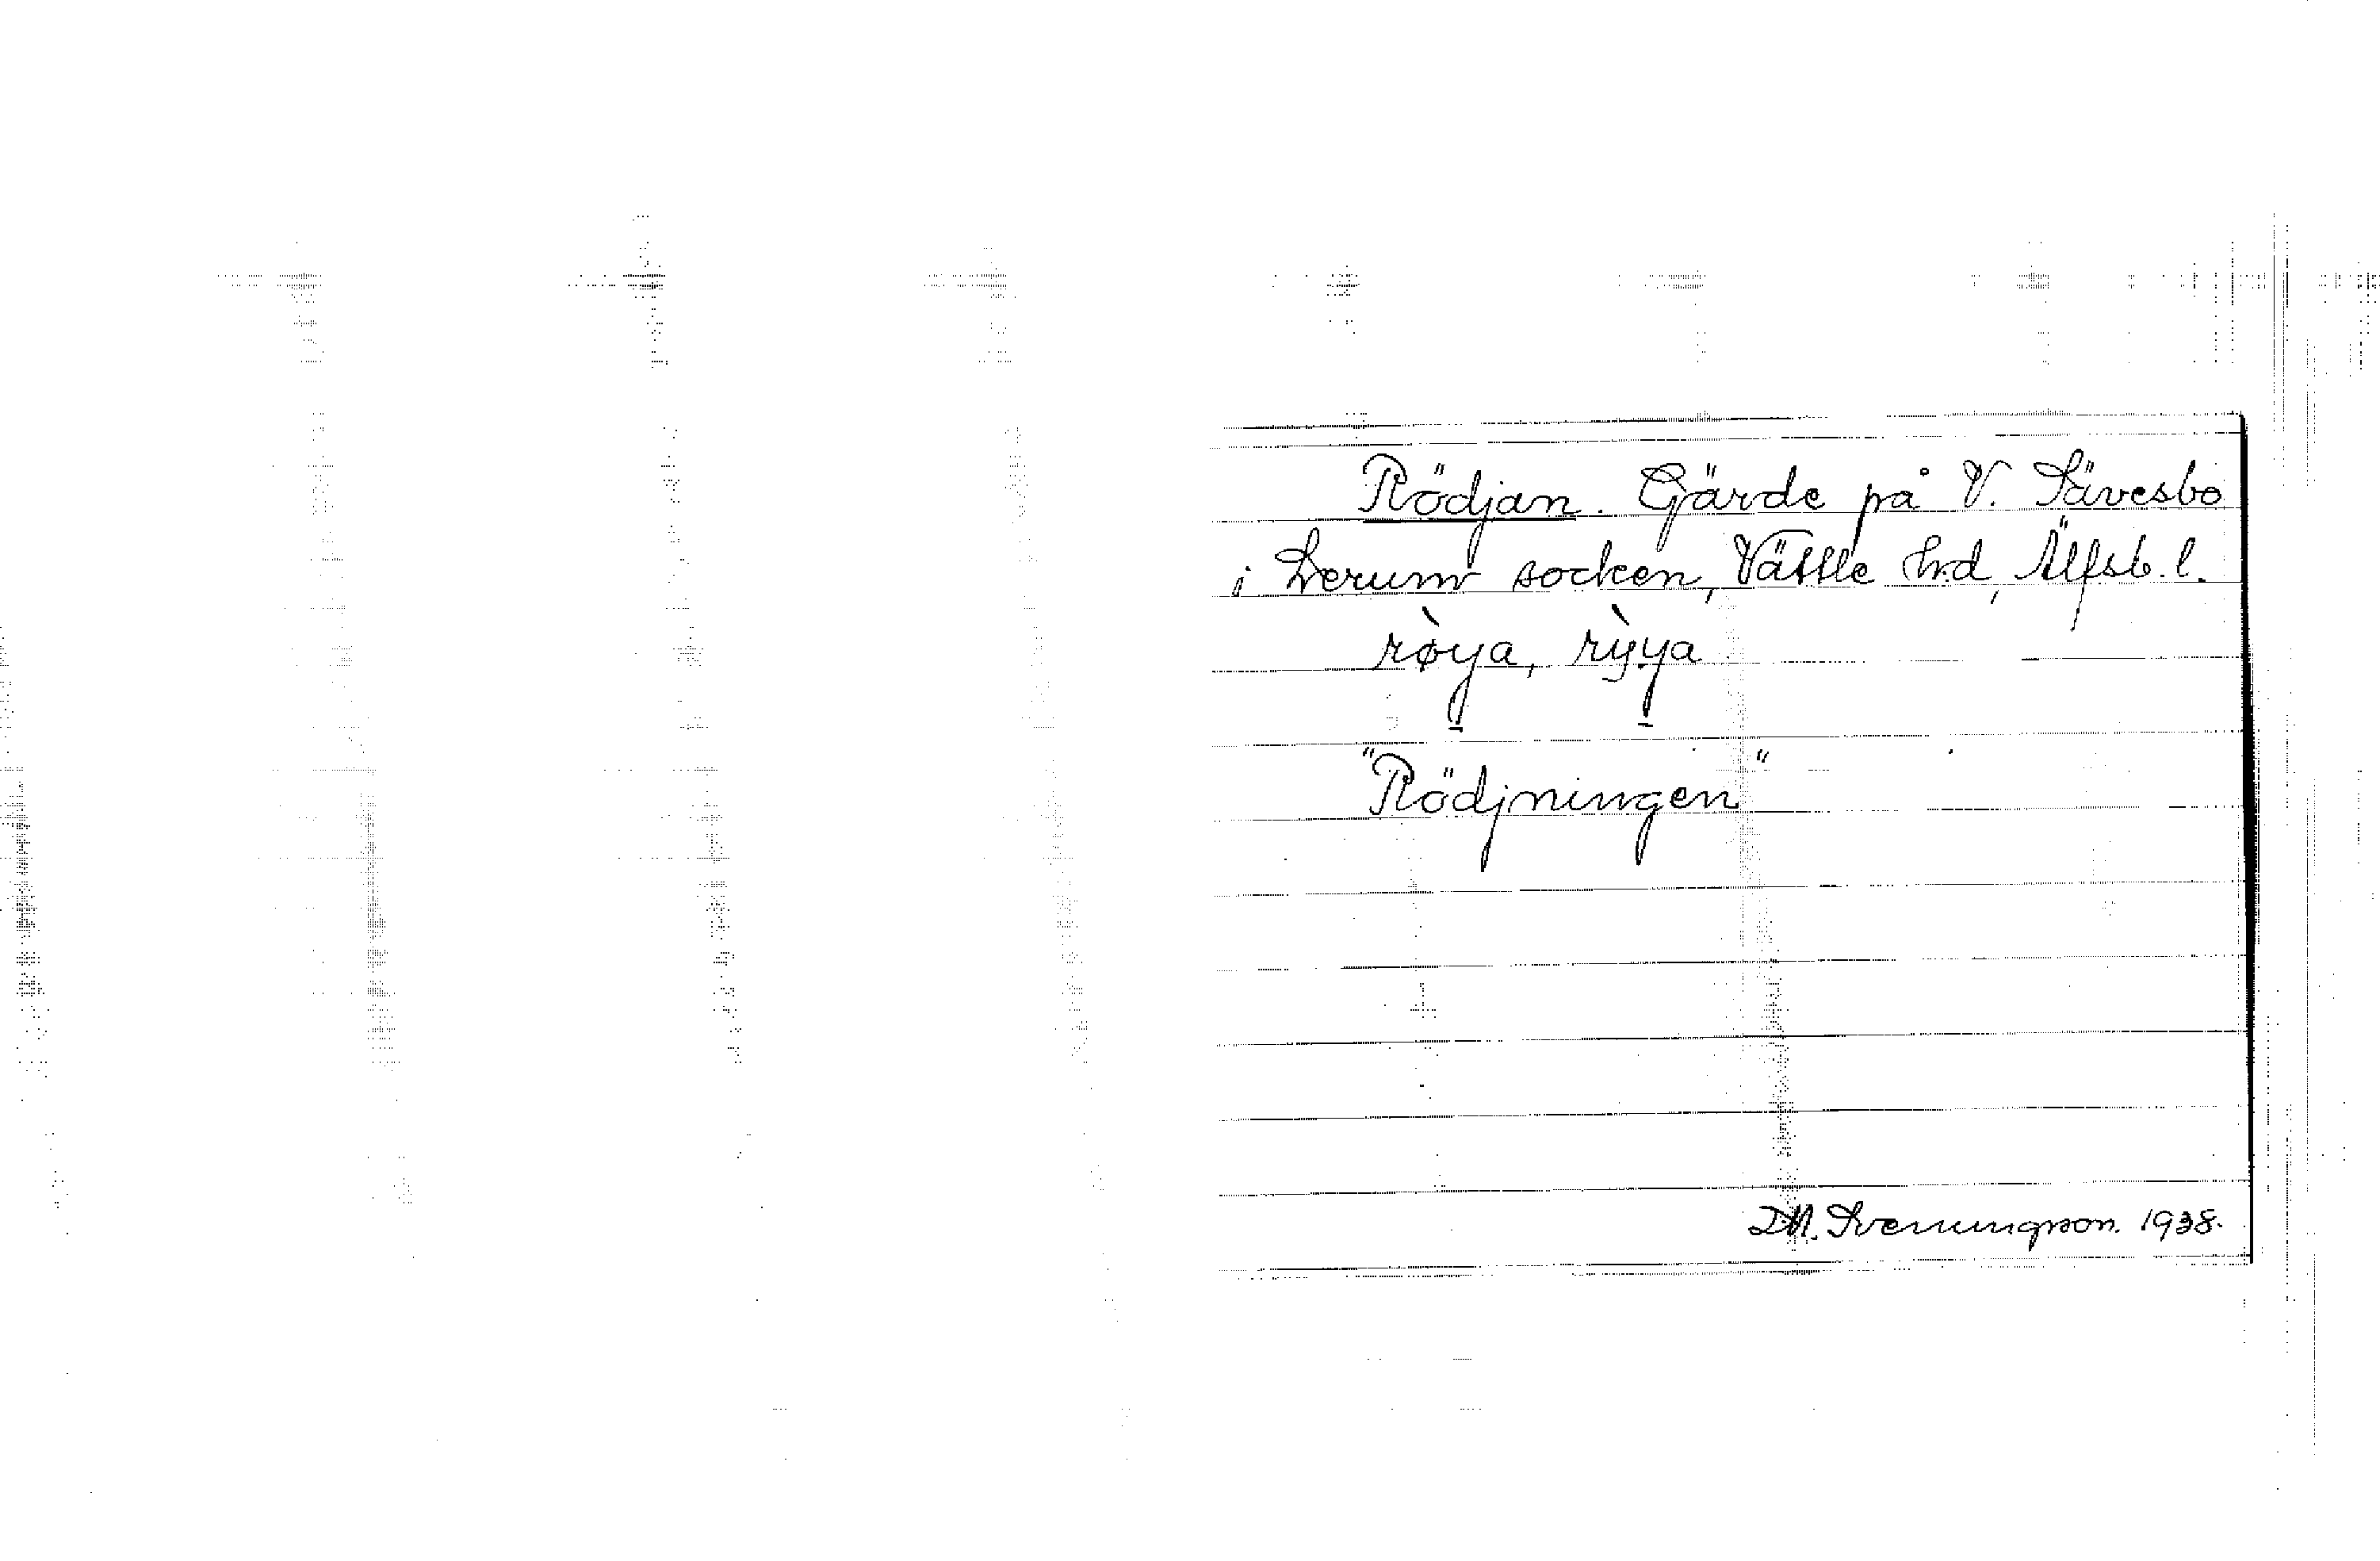 Rödjan. Gärde på V. Sävesbo
i Lerums socken, Vättle hd, Älfsb. l.
rø̀ya, rỳya
"Rödjningen"
D.M. Svenningson. 1938.